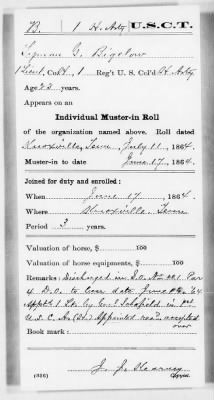 B. | 1 H. Arty | U.S.C.T.
Lyman G. Bigelow
1 Lieut, Co. A, 1 Reg't U. S. Col'd H. Arty
Age 23 years.
Appears on an
Individual Muster-in Roll
of the organization named above. Roll dated
Knoxville, Tenn, July 11, 1864.
Muster-in to date June 17, 1864.
Joined for duty and enrolled:
When June 17, 1864.
Where Knoxville, Tenn
Period 3 years.
Valuation of horse, $ 100
Valuation of horse equipments, $ 100
Remarks: Discharged in S.O. No. 221 Par
4 D.O. to date June 16 '64
Appt'd 1 Lt. by Gen'l Schofield in 1st
U.S.C.A. (Hv.) Appointed accepted
over
Book mark:
(356)
Copyist.